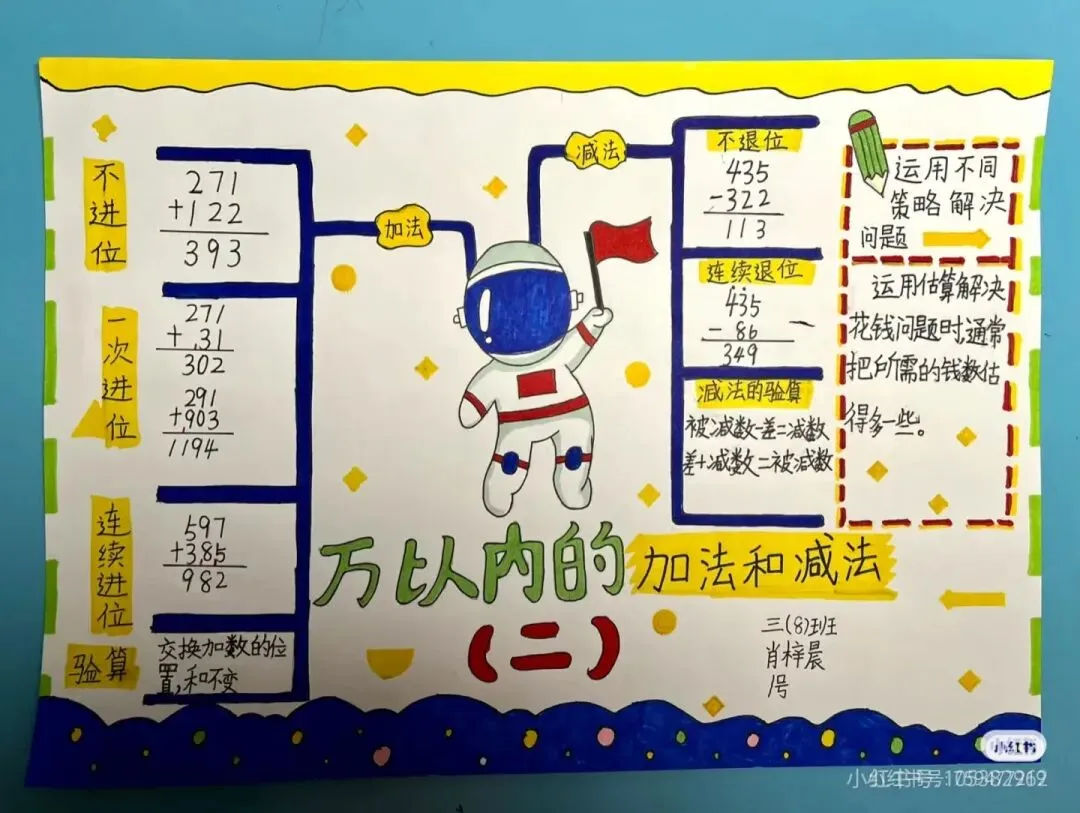 不进位
271
+122
393
一次进位
271
+31
302
291
+903
1194
连续进位
597
+385
982
验算
交换加数的位
置,和不变
加法
减法
不退位
435
-322
113
连续退位
435
- 86
349
减法的验算
被减数-差=减数
差+减数=被减数
运用不同
策略解决
问题
运用估算解决
花钱问题时,通常
把所需的钱数估
得多一些。
万以内的
加法和减法
(二)
三(8)班
肖梓晨
1号
小红书